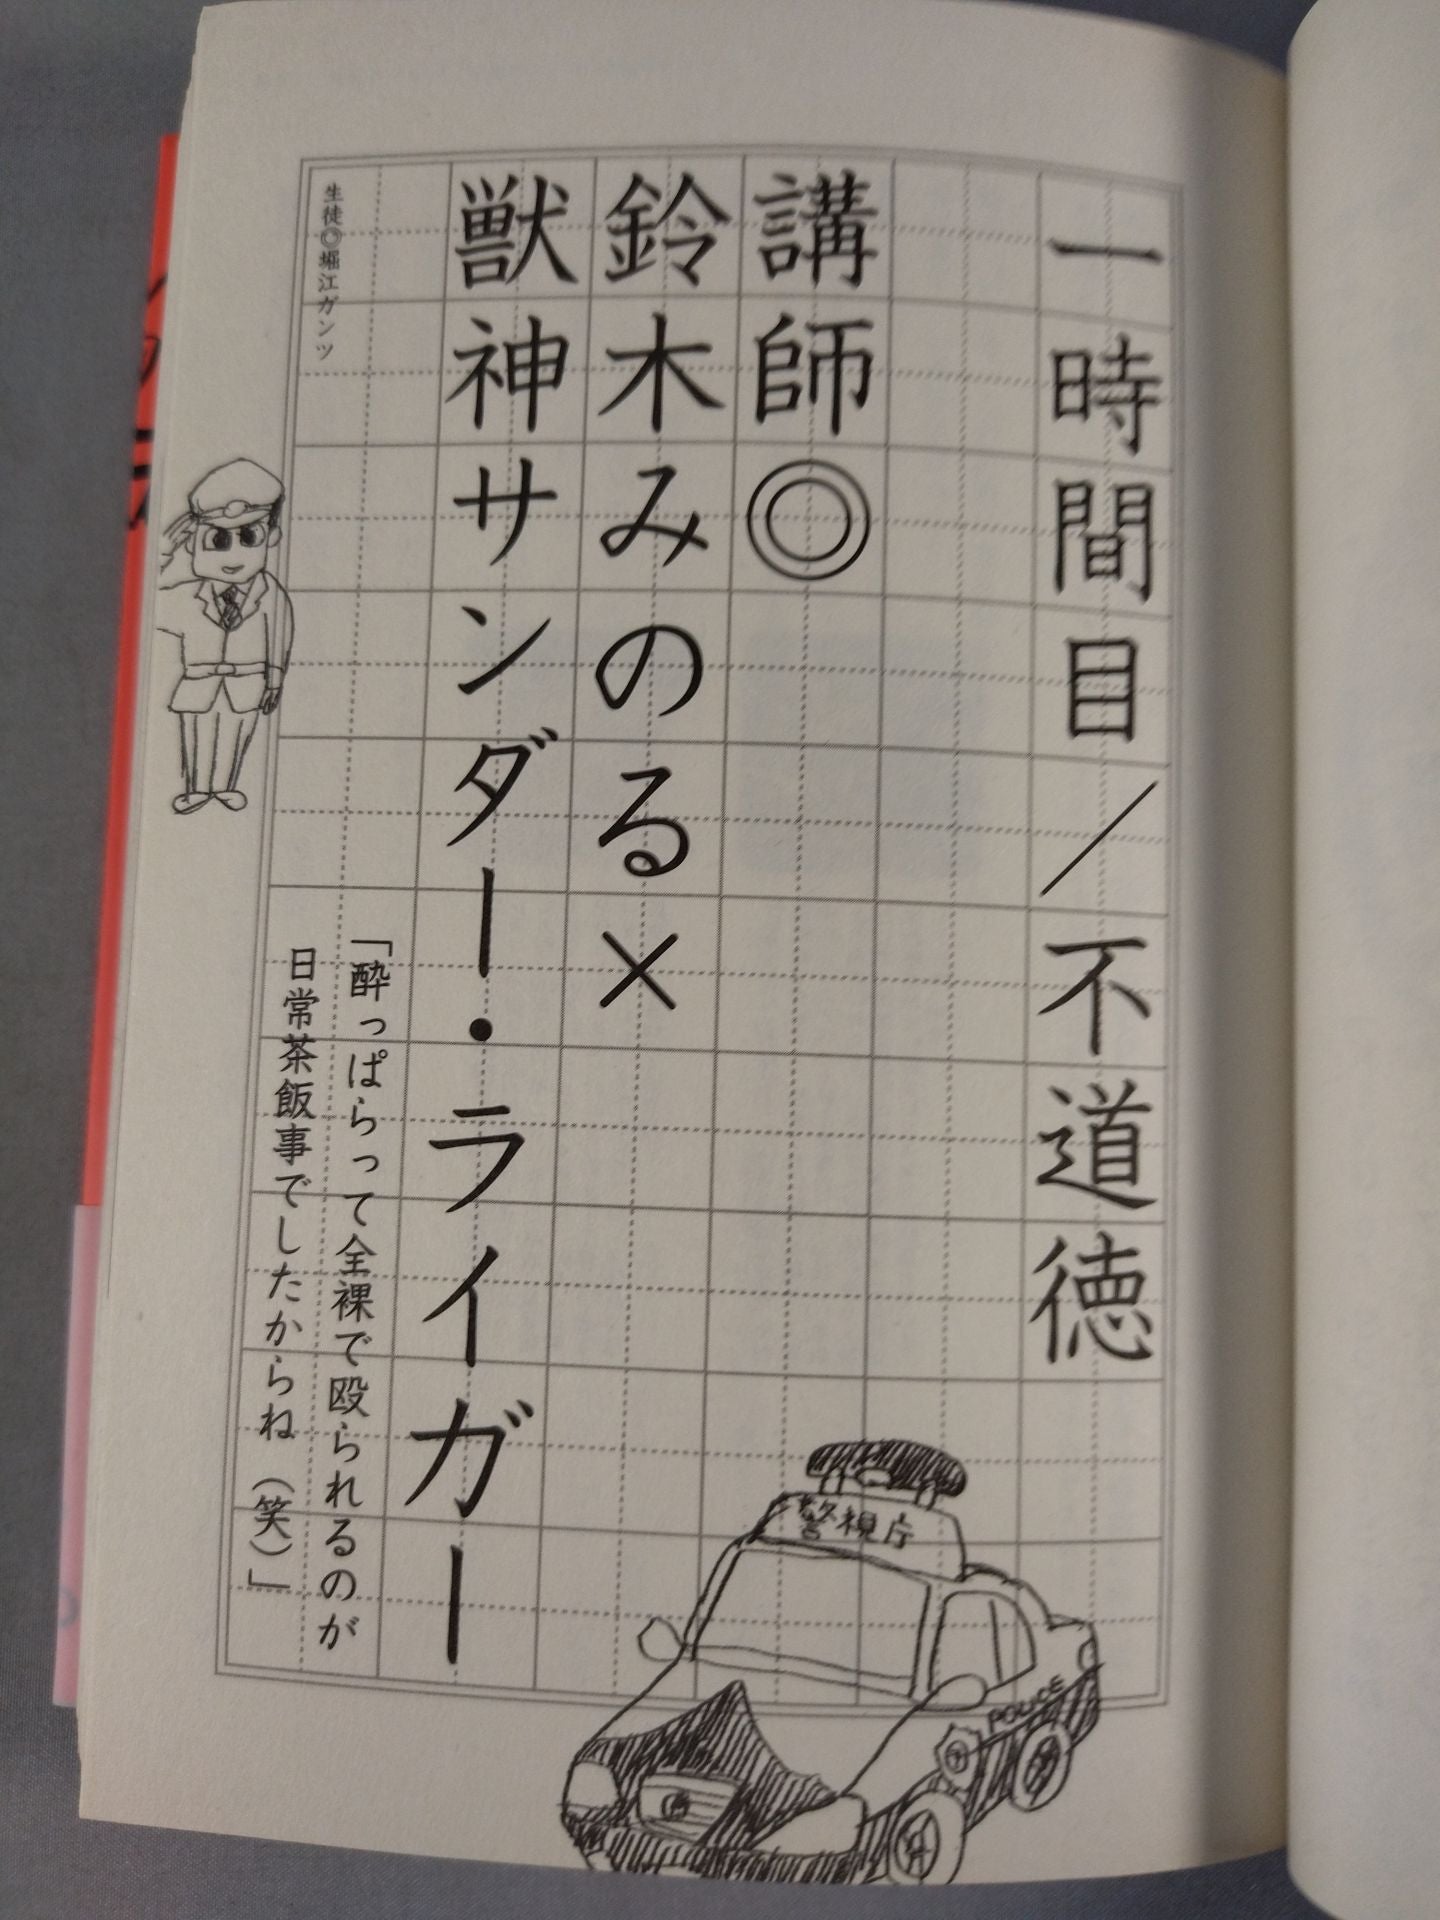 一時間目/不道徳
講師◎
鈴木みのる×
獣神サンダー・ライガー
「酔っぱらって全裸で殴られるのが
日常茶飯事でしたからね(笑)」
生徒◎堀江ガンツ
警視庁
POLICE